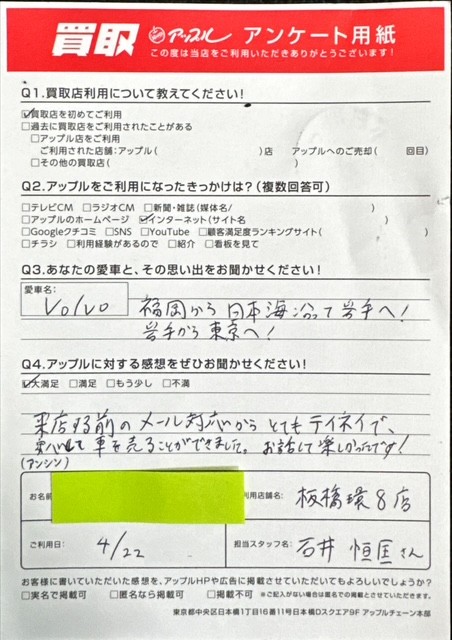 買取 アップル アンケート用紙
この度は当店をご利用いただきありがとうございます!
Q1.買取店利用について教えてください!
☑買取店を初めてご利用
□過去に買取店をご利用されたことがある
□アップル店をご利用
ご利用された店舗:アップル( )店 アップルへのご売却( 回目)
□その他の買取店( )
Q2.アップルをご利用になったきっかけは?(複数回答可)
□テレビCM □ラジオCM □新聞・雑誌(媒体名/ )
□アップルのホームページ ☑インターネット(サイト名 )
□Googleクチコミ □SNS □YouTube □顧客満足度ランキングサイト( )
□チラシ □利用経験があるので □紹介 □看板を見て
Q3.あなたの愛車と、その思い出をお聞かせください!
愛車名:
Volvo 福岡から日本海沿って岩手へ!
岩手から東京へ!
Q4.アップルに対する感想をぜひお聞かせください!
☑大満足 □満足 □もう少し □不満
来店する前のメール対応からとてもテイネイで、
安心して車を売ることができました。お話して楽しかったです!
(アンシン)
お名前 利用店舗名: 板橋環8店
ご利用日: 4/22 担当スタッフ名: 石井 恒匡さん
お客様に書いていただいた感想を、アップルHPや広告に掲載させていただいてもよろしいでしょうか?
□実名で掲載可 □匿名なら掲載可 □掲載不可 ※ご記入がない場合は匿名での掲載とさせていただきます。
東京都中央区日本橋1丁目16番11号日本橋Dスクエア9F アップルチェーン本部